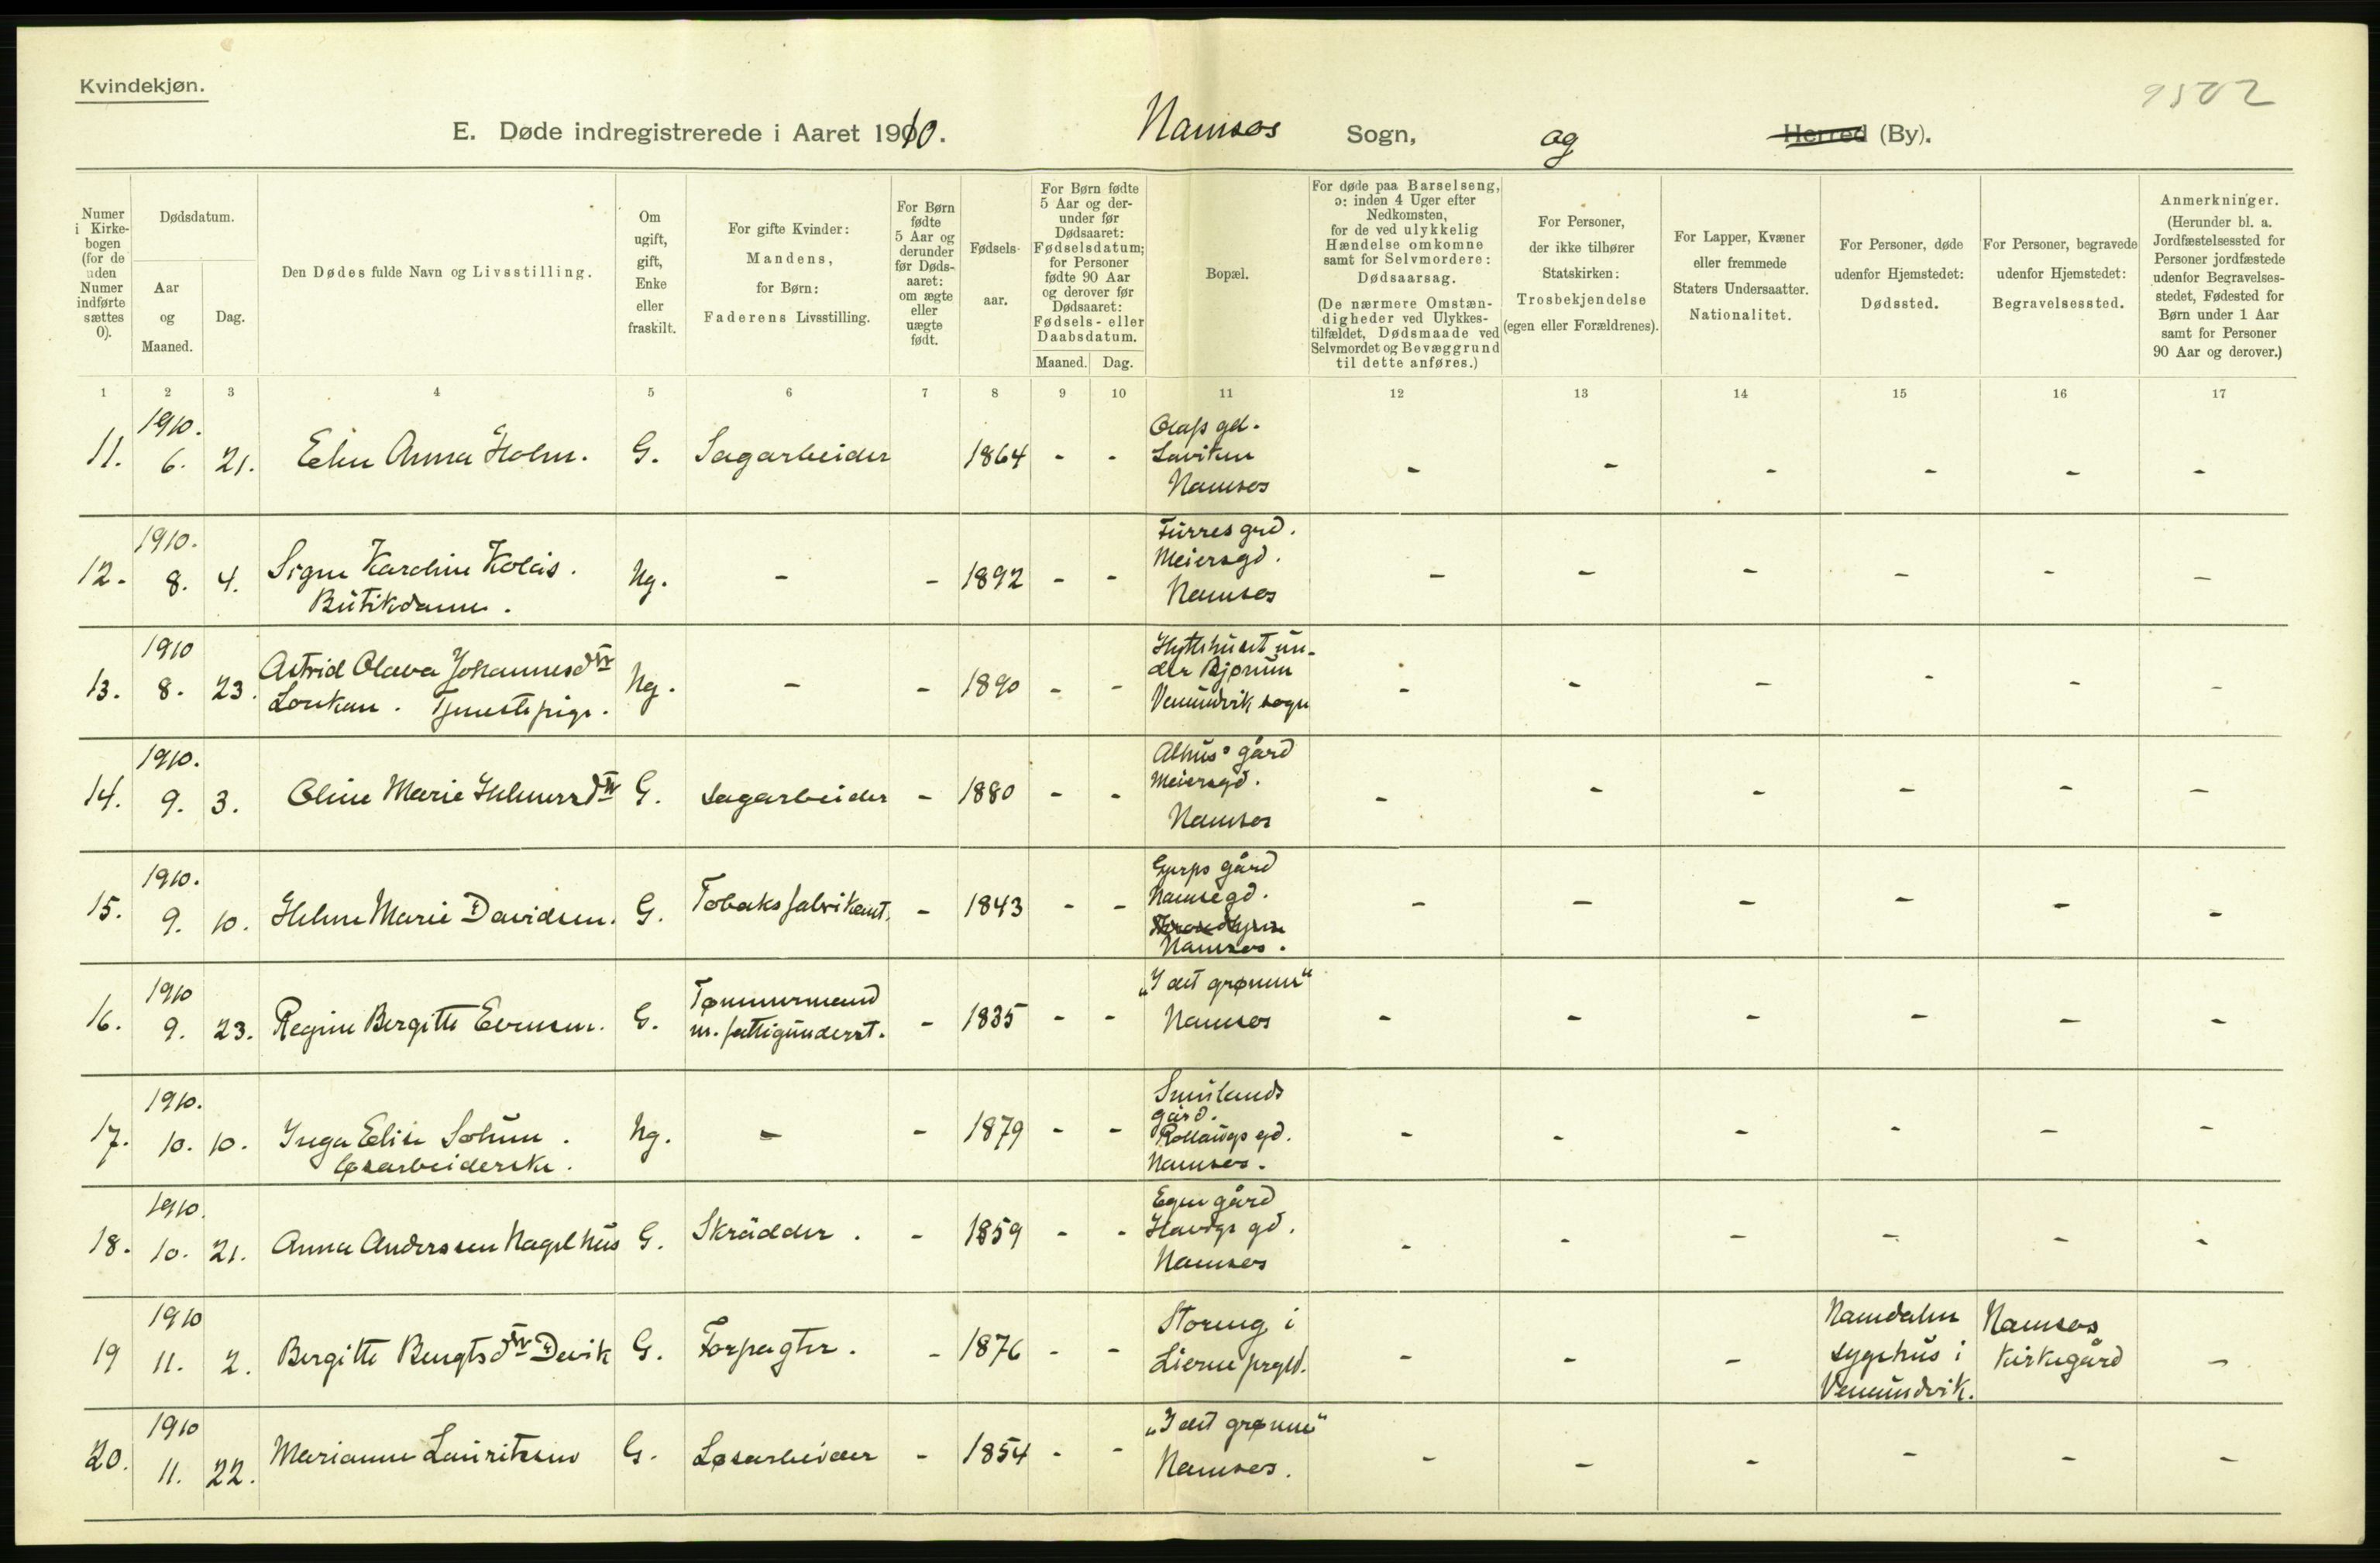 Kvindekjøn.
9502
E. Døde indregistrerede i Aaret 1910. Namsos Sogn, og Herred (By).
Numer i Kirkebogen (for de uden Numer indførte sættes 0).
Dødsdatum.
Aar og Maaned.
Dag.
Den Dødes fulde Navn og Livsstilling.
Om ugift, gift, Enke eller fraskilt.
For gifte Kvinder: Mandens, for Børn: Faderens Livsstilling.
For Børn fødte 5 Aar og derunder før Dødsaaret: om ægte eller uægte født.
Fødselsaar.
For Børn fødte 5 Aar og derunder før Dødsaaret: Fødselsdatum; for Personer fødte 90 Aar og derover før Dødsaaret: Fødsels- eller Daabsdatum.
Maaned. Dag.
Bopæl.
For døde paa Barselseng, ɔ: inden 4 Uger efter Nedkomsten, for de ved ulykkelig Hændelse omkomne samt for Selvmordere: Dødsaarsag.
(De nærmere Omstændigheder ved Ulykkestilfældet, Dødsmaade ved Selvmordet og Bevæggrund til dette anføres.)
For Personer, der ikke tilhører Statskirken: Trosbekjendelse (egen eller Forældrenes).
For Lapper, Kvæner eller fremmede Staters Undersaatter. Nationalitet.
For Personer, døde udenfor Hjemstedet: Dødssted.
For Personer, begravede udenfor Hjemstedet: Begravelsessted.
Anmerkninger.
(Herunder bl. a. Jordfæstelsessted for Personer jordfæstede udenfor Begravelsesstedet, Fødested for Børn under 1 Aar samt for Personer 90 Aar og derover.)
1 2 3 4 5 6 7 8 9 10 11 12 13 14 15 16 17
11. 1910. 6. 21. Elin Anna Holm. G. Sagarbeider 1864 - - Olafs gd. Namsos - - - - - -
12. 1910. 8. 4. Signe Karoline Kolås. Butikdame. Ug. - - 1892 - - Furres grd. Meiersgd. Namsos - - - - - -
13. 1910 8. 23. Astrid Olava Johannesdtr Lonkan. Tjenestepige. Ug. - - 1890 - - Hyttehuset under Bjørum Vemundvik sogn - - - - - -
14. 1910. 9. 3. Oline Marie Helmersdtr G. Sagarbeider - 1880 - - Alhus' gård Meiersgd. Namsos - - - - - -
15. 1910. 9. 10. Helene Marie Davidsen. G. Tobaksfabrikant. - 1843 - - gård Namsegd. Namsos. - - - - - -
16. 1910 9. 23. Regine Bergitte Evensen. G. Tømmermand m. fattigunderst. - 1835 - - "I det grønne" Namsos - - - - - -
17. 1910. 10. 10. Inga Elise Solum. Løsarbeiderske. Ug. - - 1879 - - Smilands gård. Rollaugs gd. Namsos. - - - - - -
18. 1910. 10. 21. Anna Anderssen Nagelhus G. Skrädder. - 1859 - - Egen gård Havigs gd. Namsos - - - - - -
19 1910 11. 2. Bergitte Bengtsdtr Devik G. Forpagter. - 1876 - - Storeng i Lierne prgld. - - - Namdalen sygehus i Vemundvik. Namsos kirkegård -
20. 1910 11. 22. Marianne Lauritzen G. Løsarbeider - 1854 - - "I det grønne" Namsos. - - - - - -